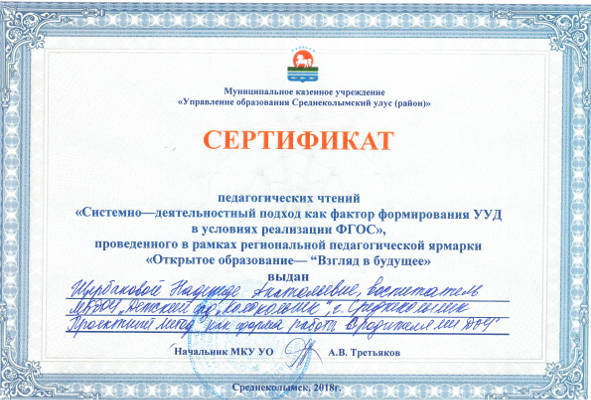 Муниципальное казенное учреждение
«Управление образования Среднеколымский улус (район)»
СЕРТИФИКАТ
педагогических чтений
«Системно—деятельностный подход как фактор формирования УУД
в условиях реализации ФГОС»,
проведенного в рамках региональной педагогической ярмарки
«Открытое образование— “Взгляд в будущее»
выдан
Щербаковой Надежде Анатольевне, воспитатель
МБДОУ „Детский сад „Колокольчик", г. Среднеколымск
Проектный метод как форма работы с родителями ДОУ"
Начальник МКУ УО А.В. Третьяков
Среднеколымск, 2018г.